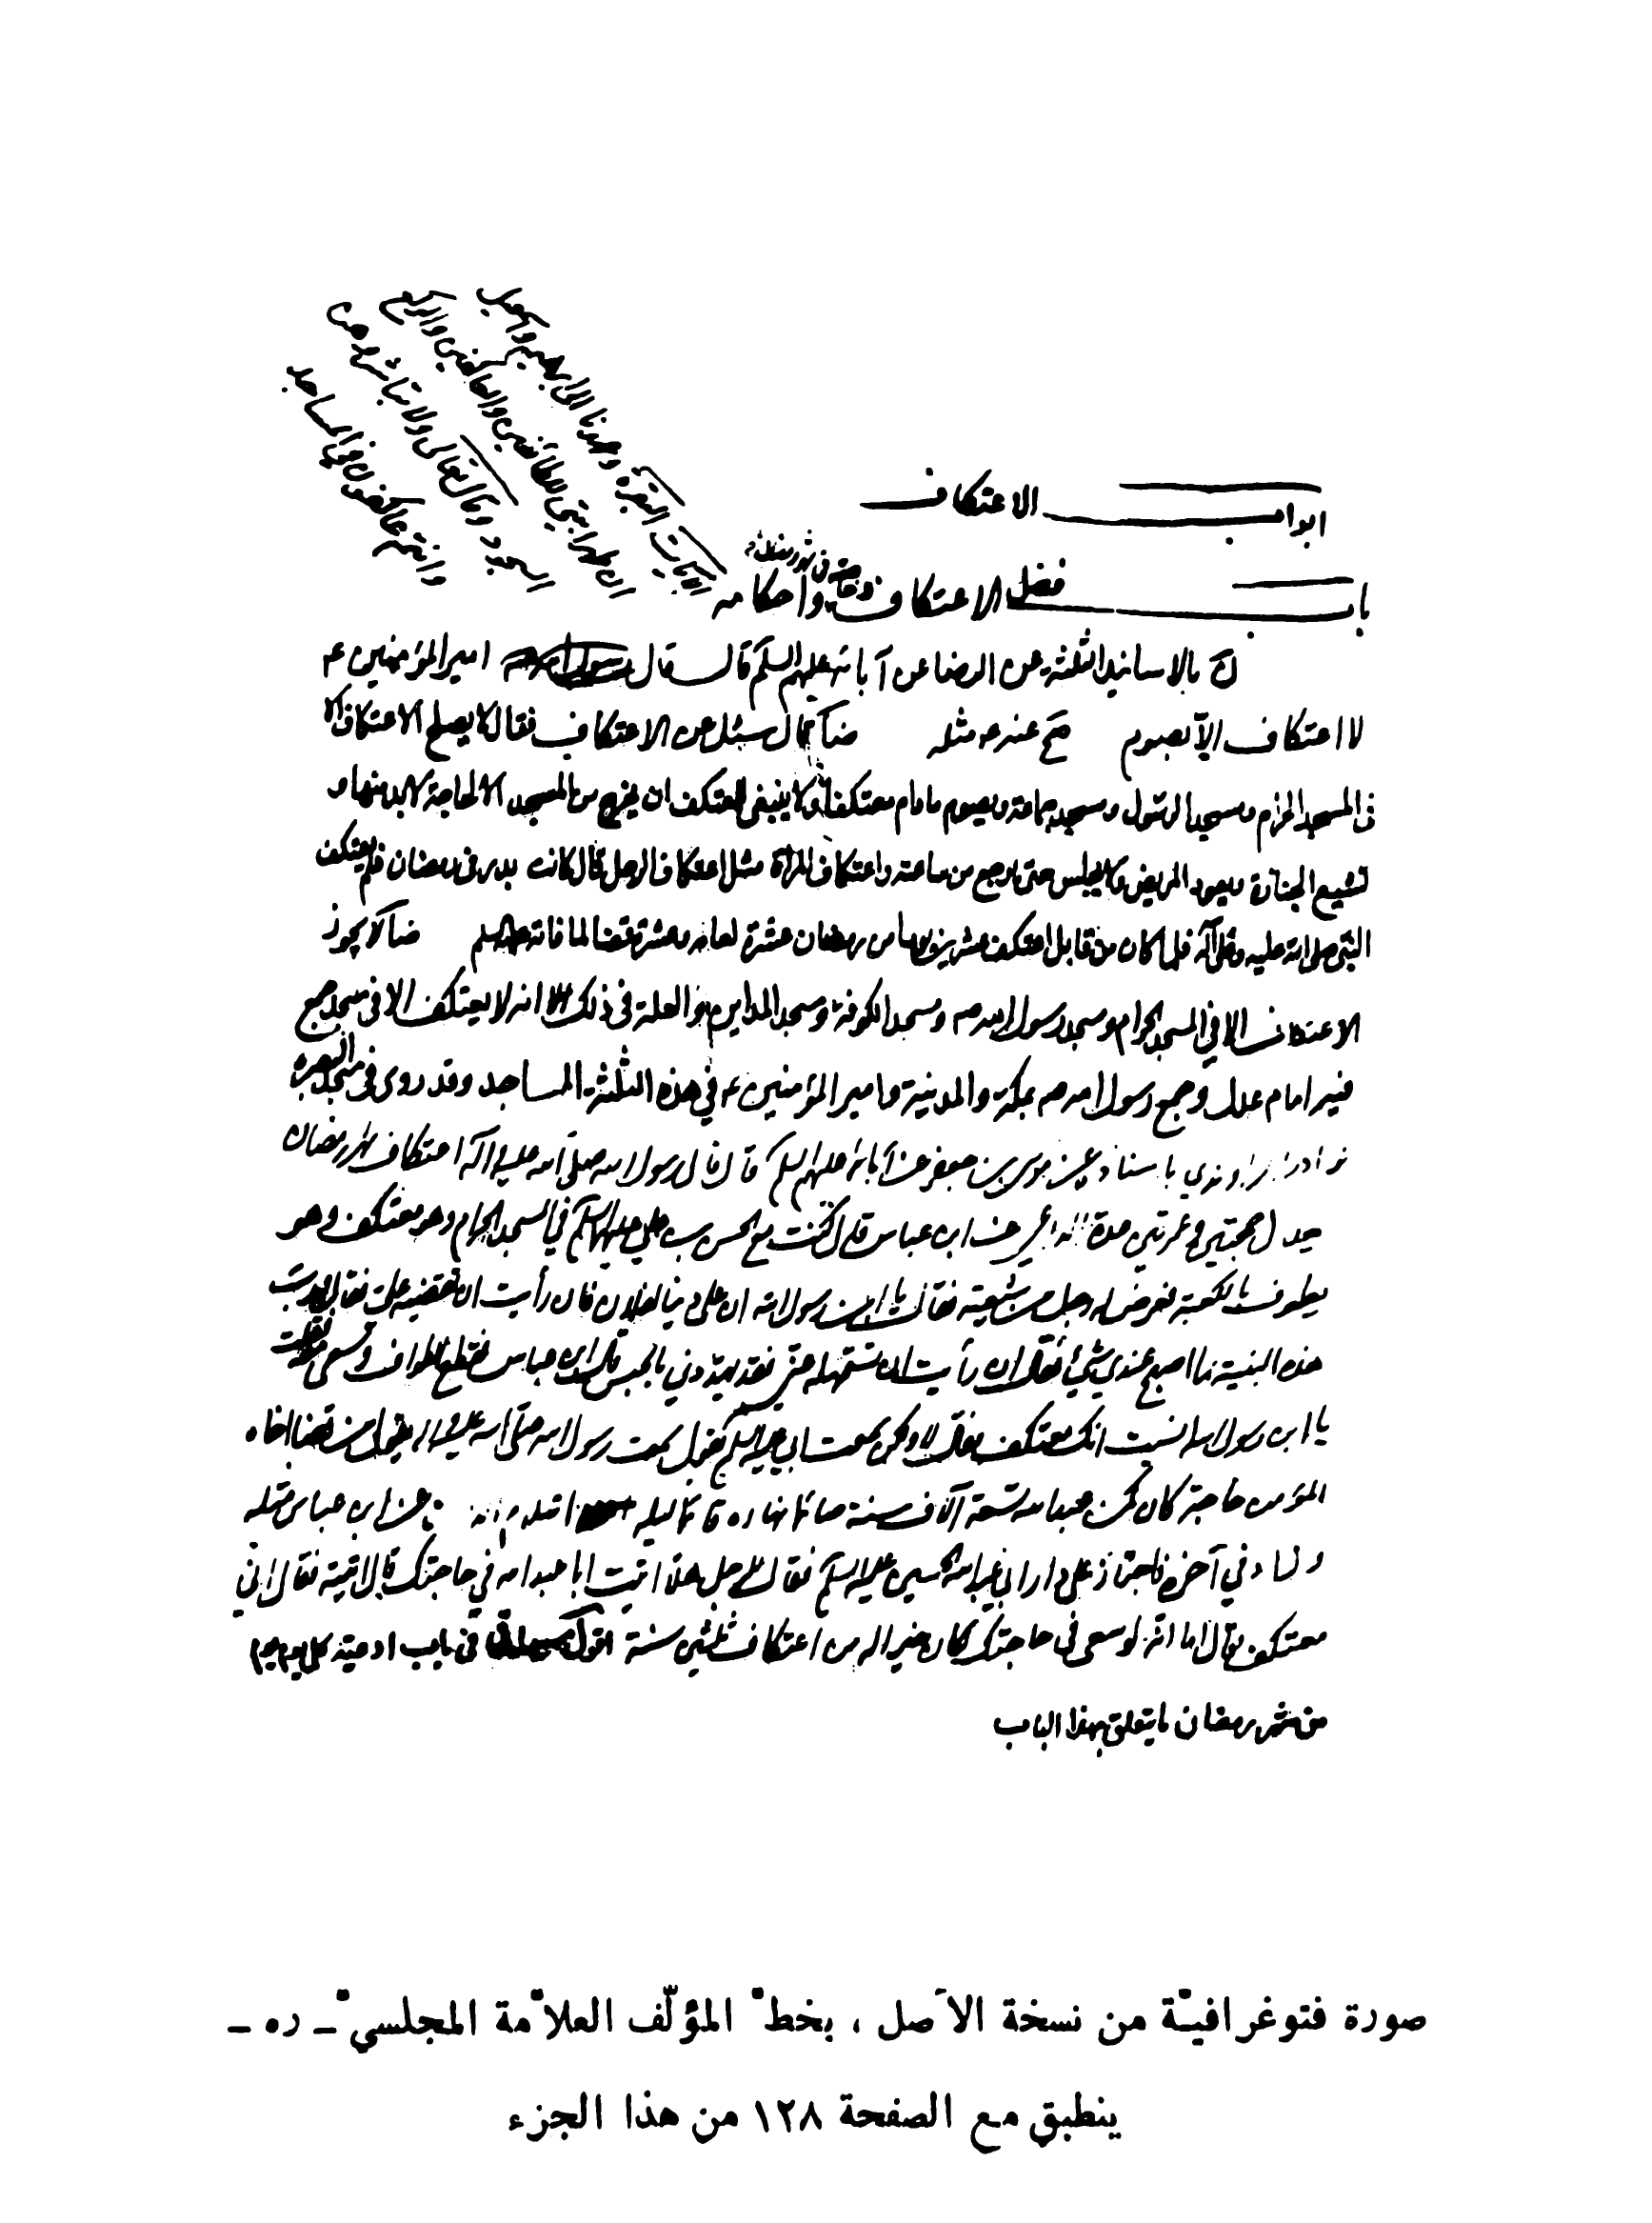 ابواب الاعتكاف
باب فضل الاعتكاف وخاصة في شهر رمضان واحكامه
الآيات البقرة وعهدنا الى
ان طهرا بيتي للطائفين والعاكفين والركع
السجود وقال تعالى ولا تباشروهن
وانتم عاكفون في المساجد
ن بالاسانيد الثلثة عن الرضا عن آبائه عليهم السلم قال قال امير المؤمنين ع
لا اعتكاف الا بصوم صح عنه ع مثله ضا قال سئل عن الاعتكاف فقال لا يصلح الاعتكاف الا
في المسجد الحرام ومسجد الرسول ومسجد جماعة ويصوم مادام معتكفا ولا ينبغي للمعتكف ان يخرج من المسجد الا لحاجة لابد منها و
تشييع الجنازة ويعود المريض ولا يجلس حتى يرجع من ساعته واعتكاف المرأة مثل اعتكاف الرجل قال كانت بدر في رمضان فلم يعتكف
النبي صلى الله عليه وآله فلما كان من قابل اعتكف عشرين يوما من رمضان عشرة لعامه وعشرة قضا لما فاته ضا لا يجوز
الاعتكاف الا في المسجد الحرام ومسجد رسول الله ص ومسجد الكوفة ومسجد المداين والعلة في ذلك انه لا يعتكف الا في مسجد جمع
فيه امام عدل وجمع رسول الله ص بمكة والمدينة وامير المؤمنين ع في هذه الثلثة المساجد وقد روى في مسجد البصرة
نوادر الراوندي باسناده عن موسى بن جعفر عن آبائه عليهم السلم قال قال رسول الله صلى الله عليه وآله اعتكاف شهر رمضان
يعدل حجتين وعمرتين عدة عن ابن عباس قال كنت مع الحسن بن علي عليهما السلم في المسجد الحرام وهو معتكف وهو
يطوف بالكعبة فعرض له رجل من شيعته فقال يا ابن رسول الله ان علي دينا لفلان فان رأيت ان تقضيه عني فقال ورب
هذه البنية ما اصبح عندي شيء فقال ان رأيت ان تستمهله عني فقد تهددني بالحبس قال ابن عباس فقطع الطواف وسعى معه فقلت
يا ابن رسول الله انسيت انك معتكف فقال لا ولكن سمعت ابي عليه السلم يقول سمعت رسول الله صلى الله عليه وآله يقول من قضا اخاه
المؤمن حاجة كان كمن عبد الله تسعة آلاف سنة صائما نهاره قائما ليله عن ابن عباس مثله
وزاد في آخره فاجتاز على دار ابي عبد الله الحسين عليه السلم فقال للرجل هلا اتيت ابا عبد الله في حاجتك قال اتيته فقال اني
معتكف فقال اما انه لو سعى في حاجتك كان خيرا له من اعتكاف ثلثين سنة اقول في باب ادعية كل يوم يوم
من شهر رمضان ما يتعلق بهذا الباب
صورة فتوغرافيّة من نسخة الأصل ، بخطّ المؤلّف العلاّمة المجلسيّ ـ ره ـ
ينطبق مع الصفحة ١٢٨ من هذا الجزء